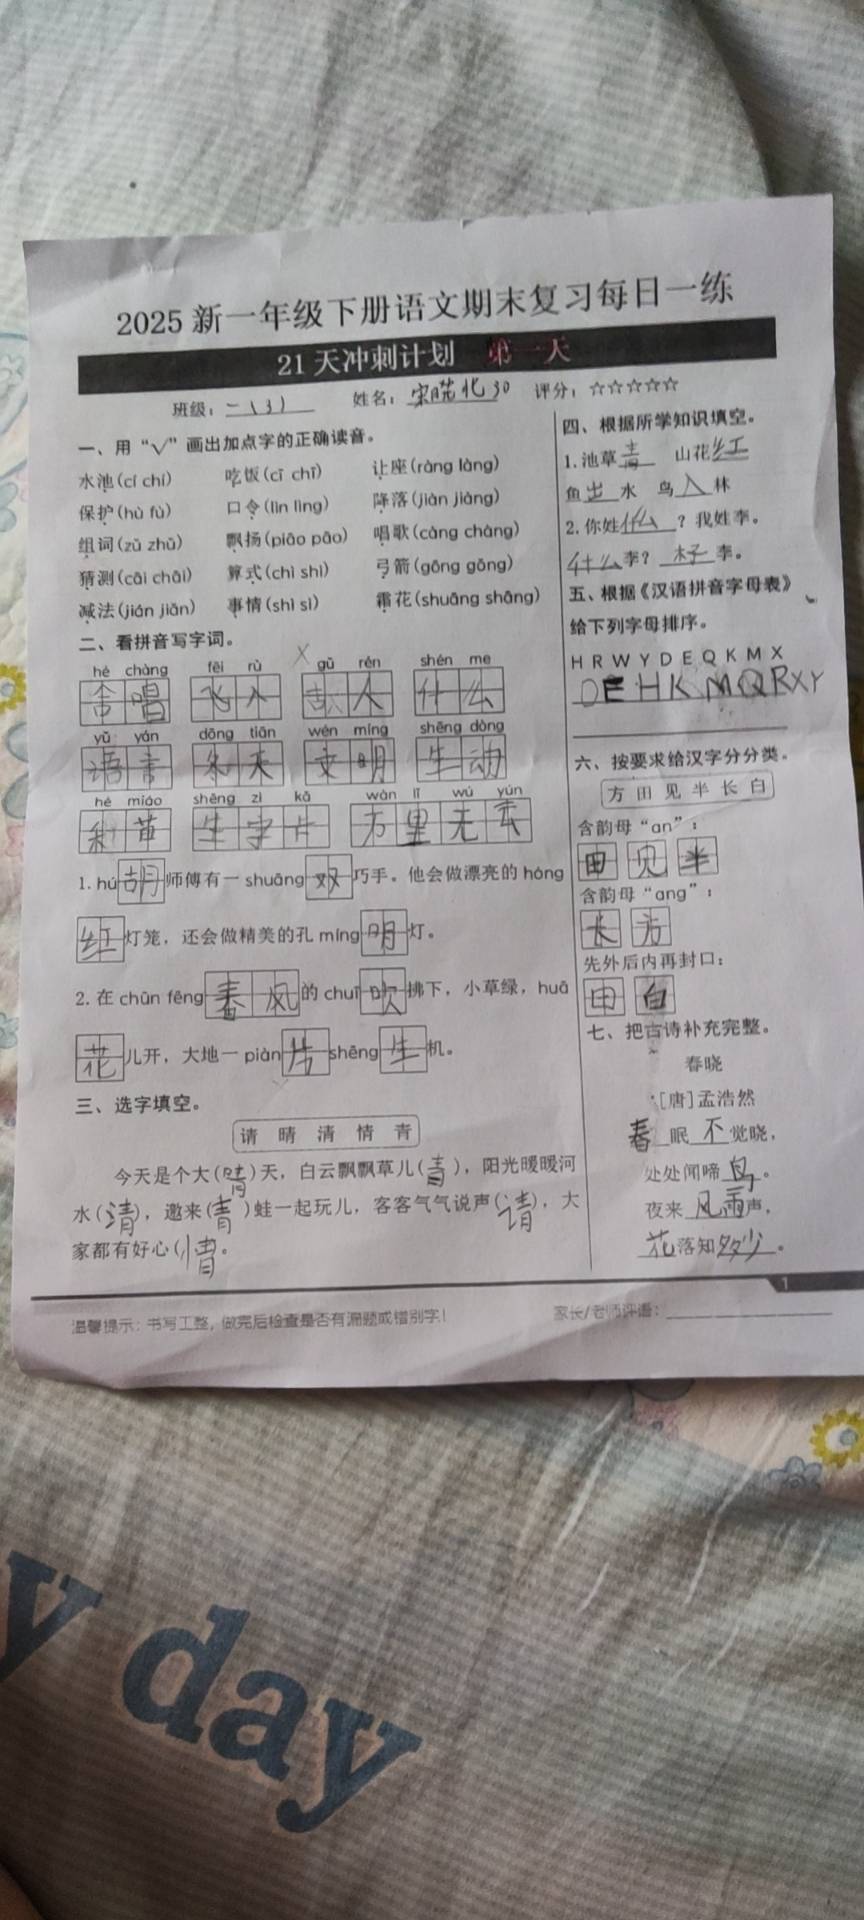 2025新一年级下册语文期末复习每日一练
21天冲刺计划 第一天
班级：二(3) 姓名： 30 评分：☆☆☆☆☆
一、用“√”画出加点字的正确读音。
水池(cí chí) 吃饭(cī chī) 让座(ràng làng)
保护(hù fù) 口令(lìn lìng) 降落(jiàn jiàng)
组词(zǔ zhǔ) 飘扬(piāo pāo) 唱歌(càng chàng)
猜测(cāi chāi) 算式(chì shì) 弓箭(gōng gǒng)
减法(jián jiǎn) 事情(shì sì) 霜花(shuāng shāng)
二、看拼音写字词。
hé chàng fēi rù gǔ rén shén me
合唱 飞入 人 什么
yǔ yán dōng tiān wén míng shēng dòng
语言 冬天 文明 生动
hé miáo shēng zì kǎ wàn lǐ wú yún
禾苗 生字卡 万里无云
1. hú胡师傅有一shuāng双巧手。他会做漂亮的hóng
红灯笼，还会做精美的孔míng明灯。
2. 在chūn fēng春风的chuī吹拂下，小草绿，huā
花儿开，大地一piàn片shēng生机。
三、选字填空。
请 晴 清 情 青
今天是个大(晴)天，白云飘飘草儿(青)，阳光暖暖河
水(清)，邀来(青)蛙一起玩儿，客客气气说声(请)，大
家都有好心(情。
四、根据所学知识填空。
1.池草青 山花红
鱼出水 鸟入林
2.你姓什么？我姓李。
什么李？木子李。
五、根据《汉语拼音字母表》
给下列字母排序。
H R W Y D E Q K M X
D E H K M Q R X Y
六、按要求给汉字分分类。
方 田 见 半 长 白
含韵母“an”：
田 见 半
含韵母“ang”：
长 方
先外后内再封口：
田 白
七、把古诗补充完整。
春晓
[唐]孟浩然
春眠不觉晓，
处处闻啼鸟。
夜来风雨声，
花落知多少。
1
温馨提示：书写工整，做完后检查是否有漏题或错别字！ 家长/老师评语：